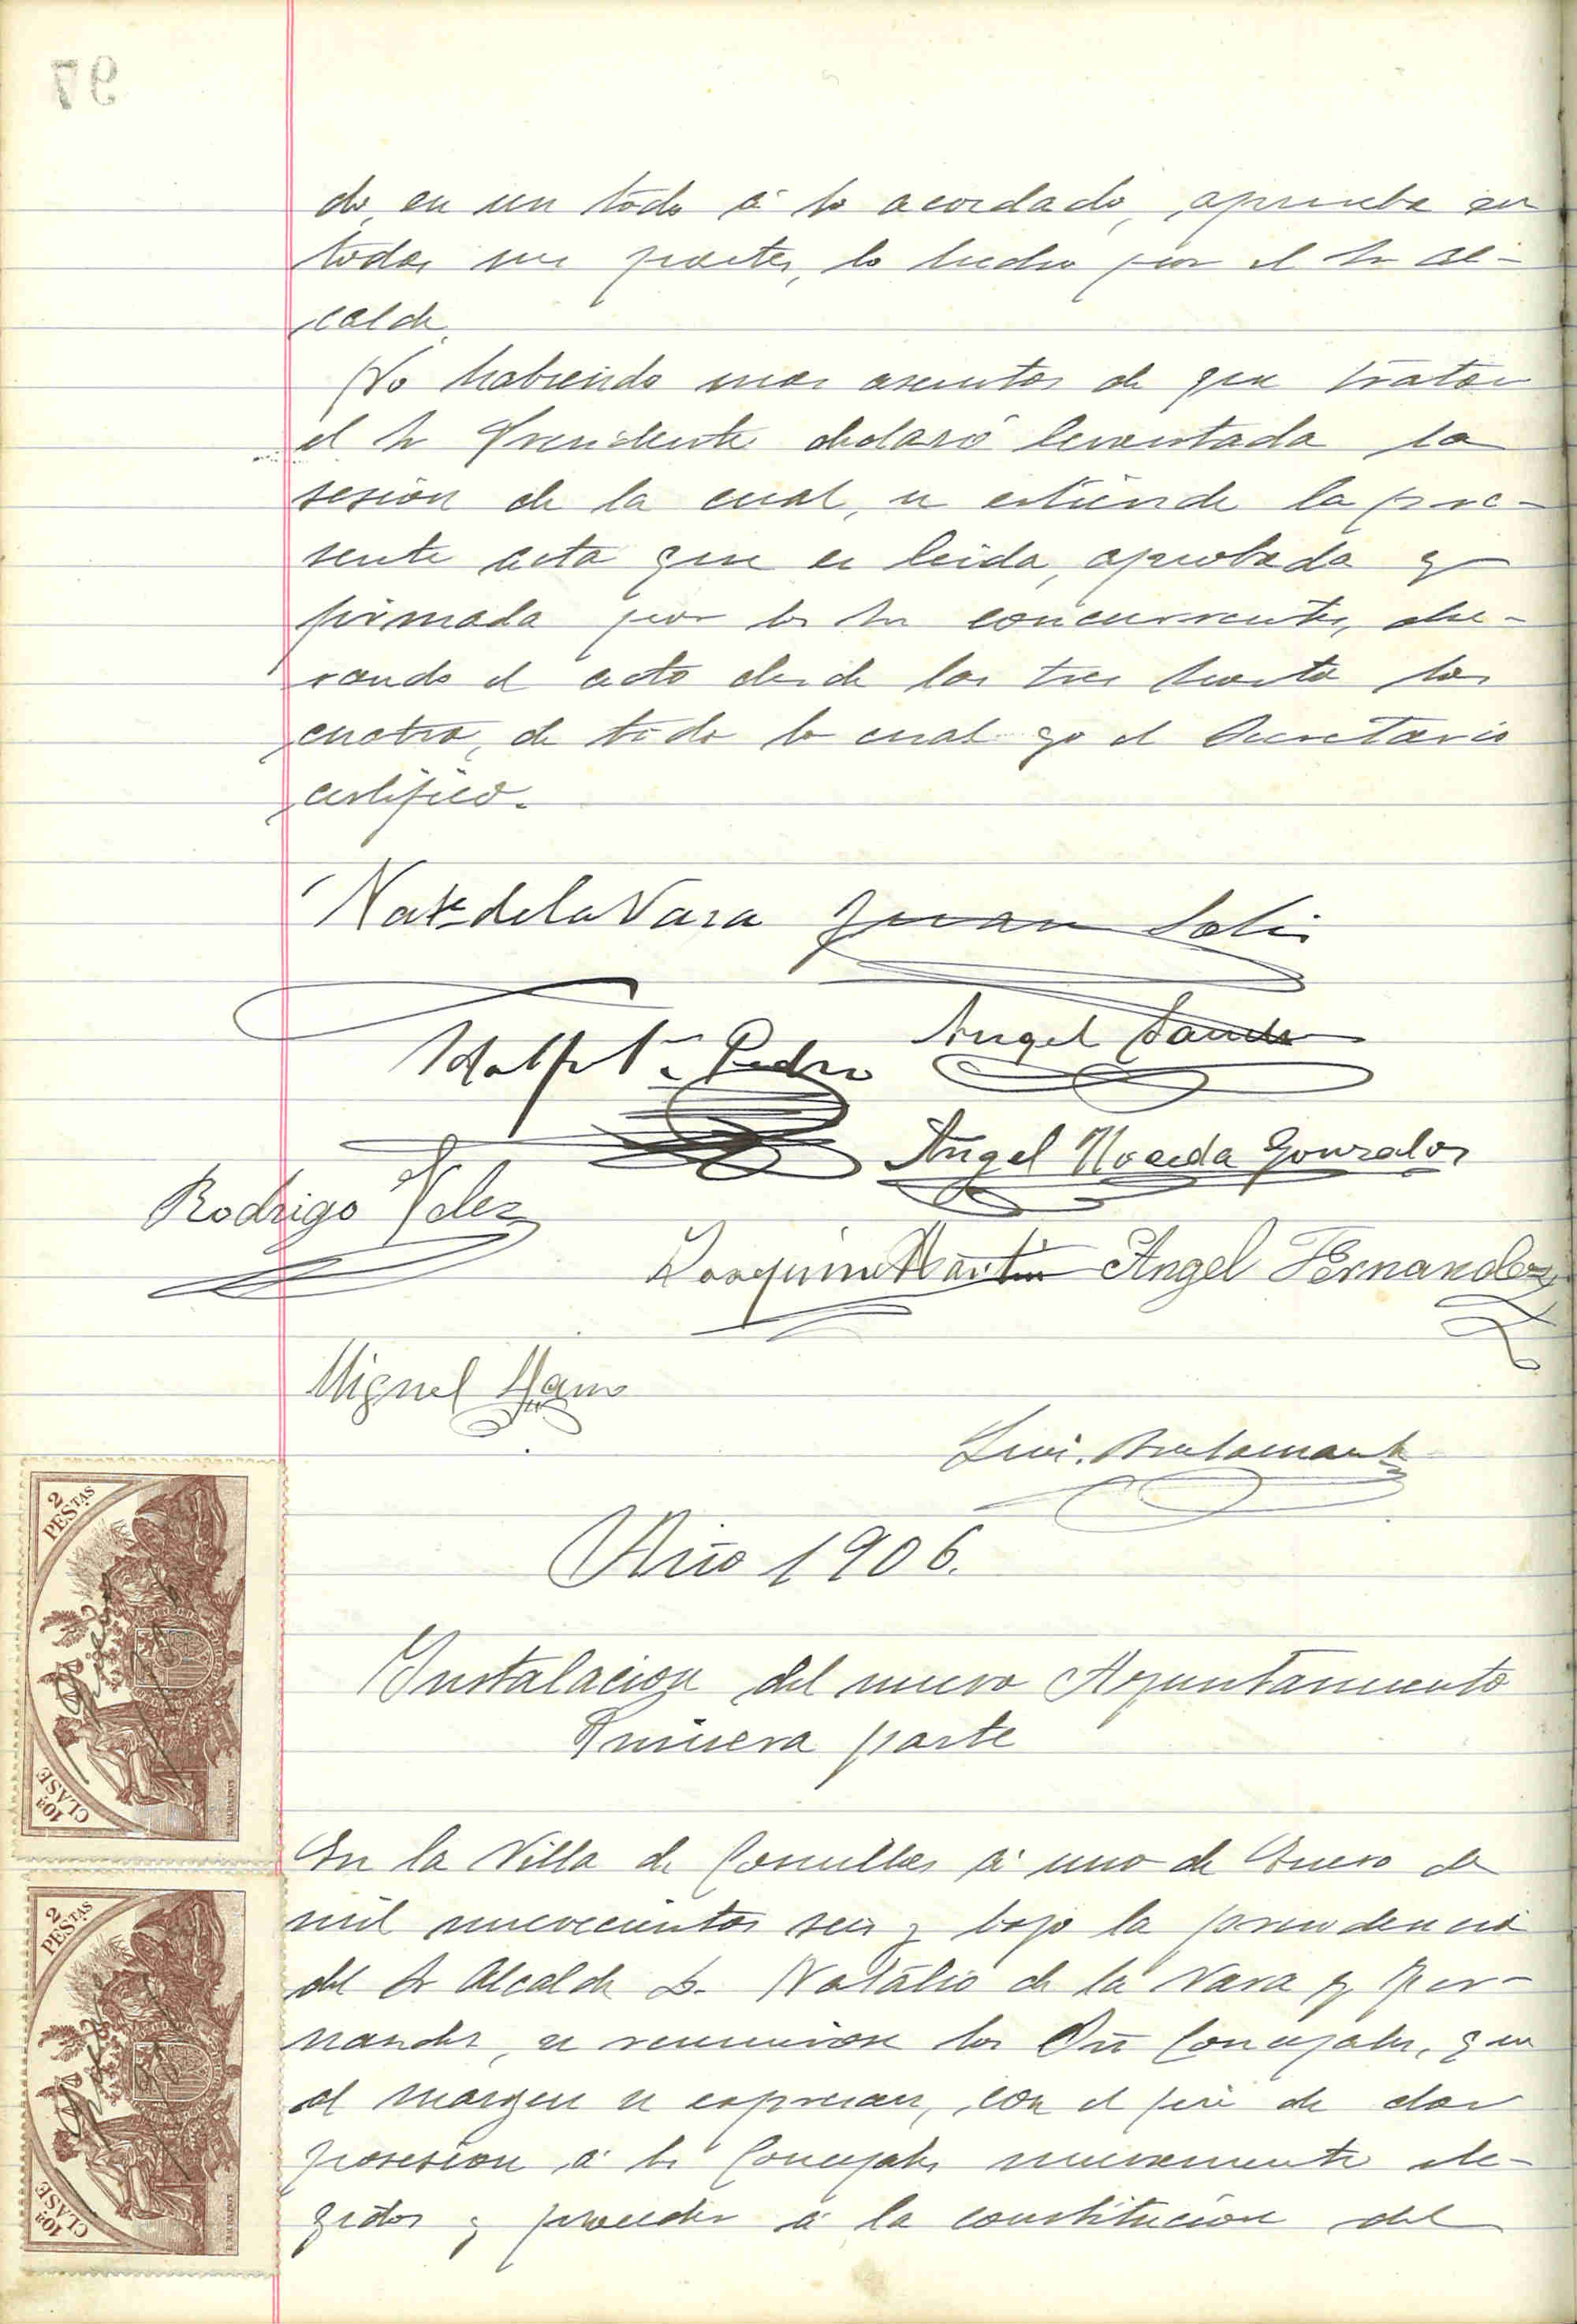 97
do, en un todo á lo acordado, aprueba en
todas sus partes, lo hecho por el Sr Al-
calde.
No habiendo mas asuntos de que tratar
el Sr Presidente declaró levantada la
sesion de la cual, se estiende la pre-
sente acta que es leida, aprobada y
firmada por los Sres concurrentes, du-
rando el acto desde las tres hasta las
cuatro, de todo lo cual yo el Secretario
certifico.
Nat. de la Vara Juan Solis
Angel Sanchez
Pedro
Angel Noceda Gonzalez
Rodrigo Velez
Joaquin Martin Angel Fernandez
Miguel Llano
Luis Bustamante
Año 1906.
Instalacion del nuevo Ayuntamiento
Primera parte
2 PESTAS
10ª CLASE
En la Villa de Comillas á uno de Enero de
mil nuevecientos seis y bajo la presidencia
del Sr Alcalde D. Natalio de la Vara y Fer-
nandez, se reunieron los Sres Concejales, que
al margen se expresan, con el fin de dar
posesion á los Concejales nuevamente ele-
gidos y proceder á la constitucion del
2 PESTAS
10ª CLASE